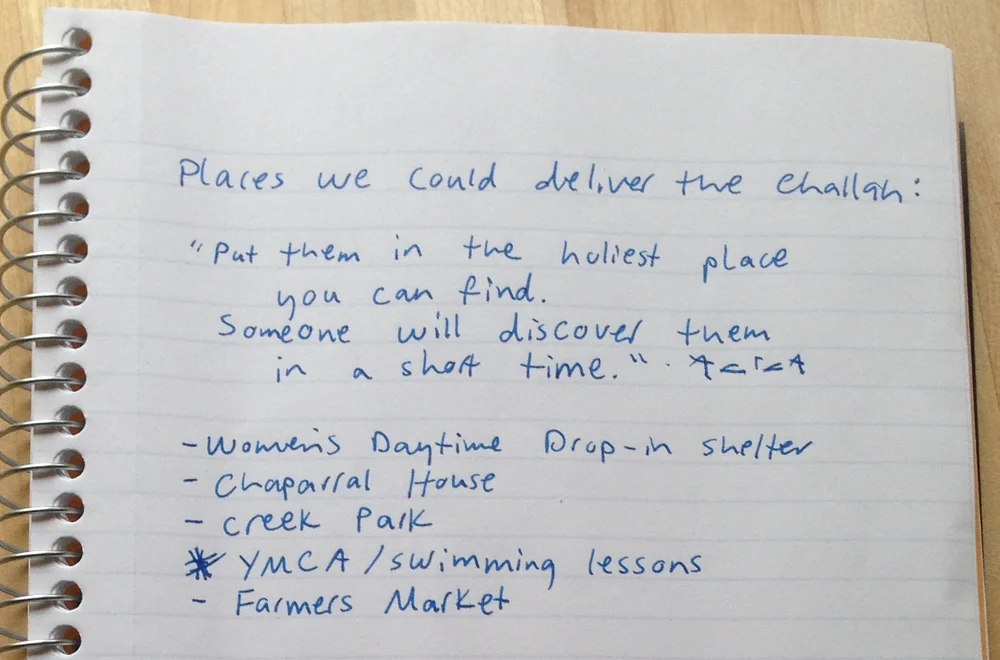 Places we could deliver the challah:
"Put them in the holiest place
you can find.
Someone will discover them
in a short time."
- Women's Daytime Drop-in shelter
- Chaparral House
- Creek Park
* YMCA/swimming lessons
- Farmers Market